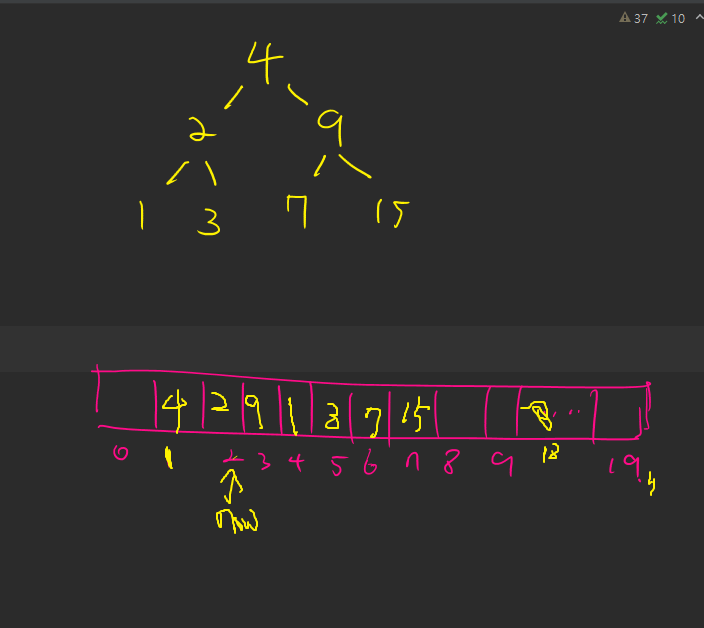 37 10
4
2 9
1 3 7 15
4 2 9 1 3 7 15
0 1 2 3 4 5 6 7 8 9 18 19
now